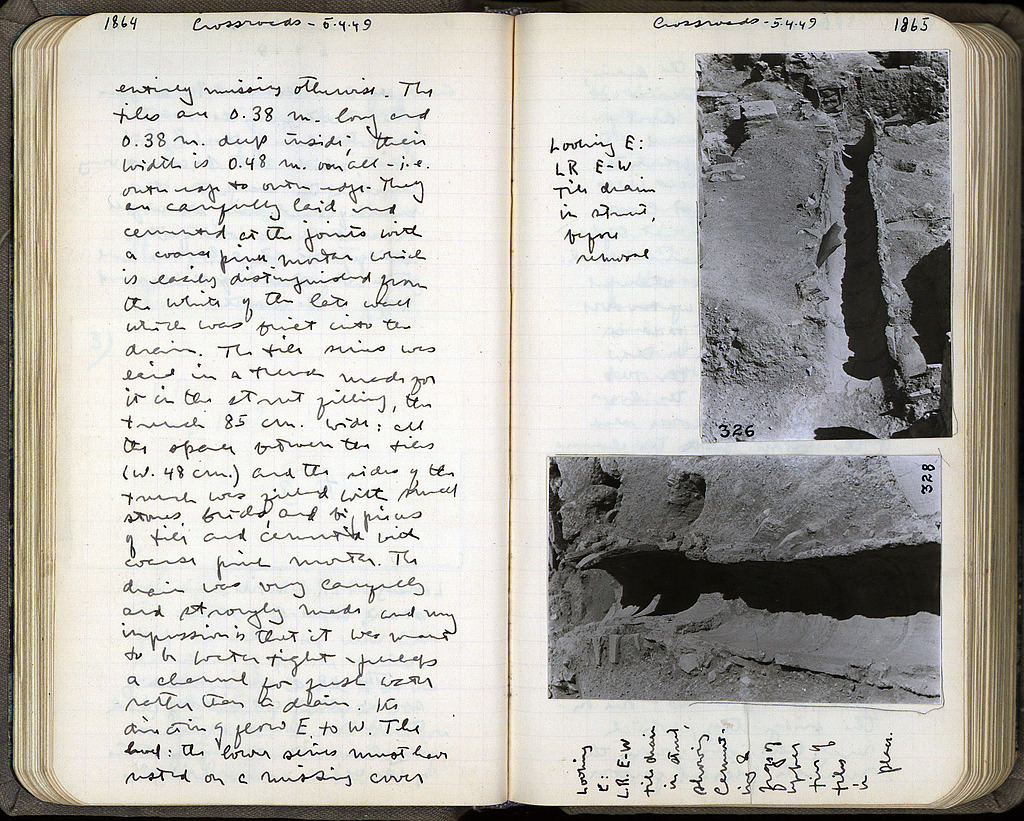 1864 Crossroads - 5.4.49
entirely missing otherwise. The
tiles are 0.38 m. long and
0.38 m. deep inside; their
width is 0.48 m. overall - i.e.
outer edge to outer edge. They
are carefully laid and
cemented at the joints with
a coarse pink mortar which
is easily distinguished from
the white of the late wall
which was built into the
drain. The tile series was
laid in a trench made for
it in the street filling, the
trench 85 cm. wide: all
the space between the tiles
(W. 48 cm.) and the sides of the
trench was filled with small
stones, bricks and big pieces
of tiles and cemented with
coarse pink mortar. The
drain was very carefully
and strongly made and my
impression is that it was meant
to be water tight - perhaps
a channel for fresh water
rather than a drain. Its
direction of flow E. to W. The
level: the lower series must have
rested on a missing cover
Crossroads - 5.4.49 1865
Looking E:
LR E-W
tile drain
in street,
before
removal
326
328
Looking
E:
L.R. E-W
tile drain
in street,
showing
cement-
ing &
frags of
upper
tier of
tiles
in place.